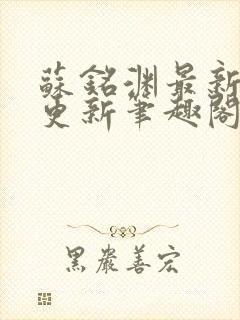 蘇銘淵最新
更新筆趣閣
黑巖善宏